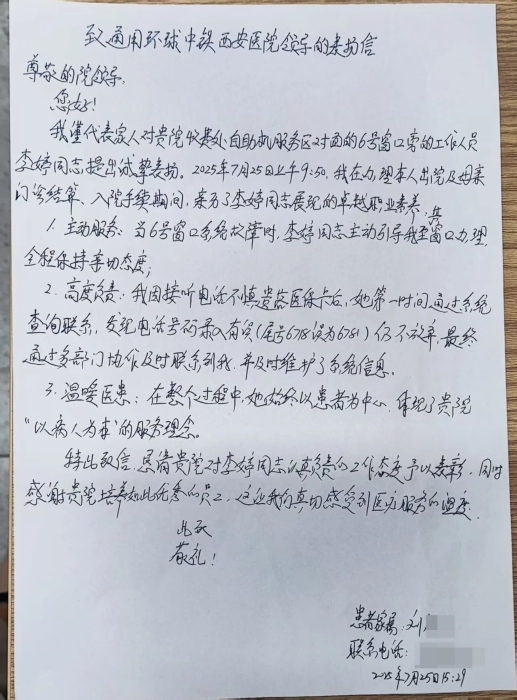 致通用环球中铁西安医院领导的表扬信
尊敬的院领导,
您好!
我谨代表家人对贵院收费处自助机服务区对面的6号窗口旁的工作人员
李婷同志提出诚挚表扬。2025年7月25日上午9:50,我在办理本人出院及母亲
门诊结算、入院手续期间,亲历了李婷同志展现的卓越职业素养,
1.主动服务:当6号窗口系统故障时,李婷同志主动引导我至窗口办理,
全程保持亲切态度;
2.高度负责:我因接听电话不慎遗落医保卡后,她第一时间通过系统
查询联系,发现电话号码录入有误(尾号6718误为6781)仍不放弃,最终
通过多部门协作及时联系到我,并及时维护了系统信息。
3.温暖医患:在整个过程中,她始终以患者为中心,体现了贵院
“以病人为本”的服务理念。
特此致信,恳请贵院对李婷同志认真负责的工作态度予以表彰,同时
感谢贵院培养如此优秀的员工,这让我们真切感受到医疗服务的温度.
此致
敬礼!
患者家属:刘
联系电话:
2025年7月25日15:29